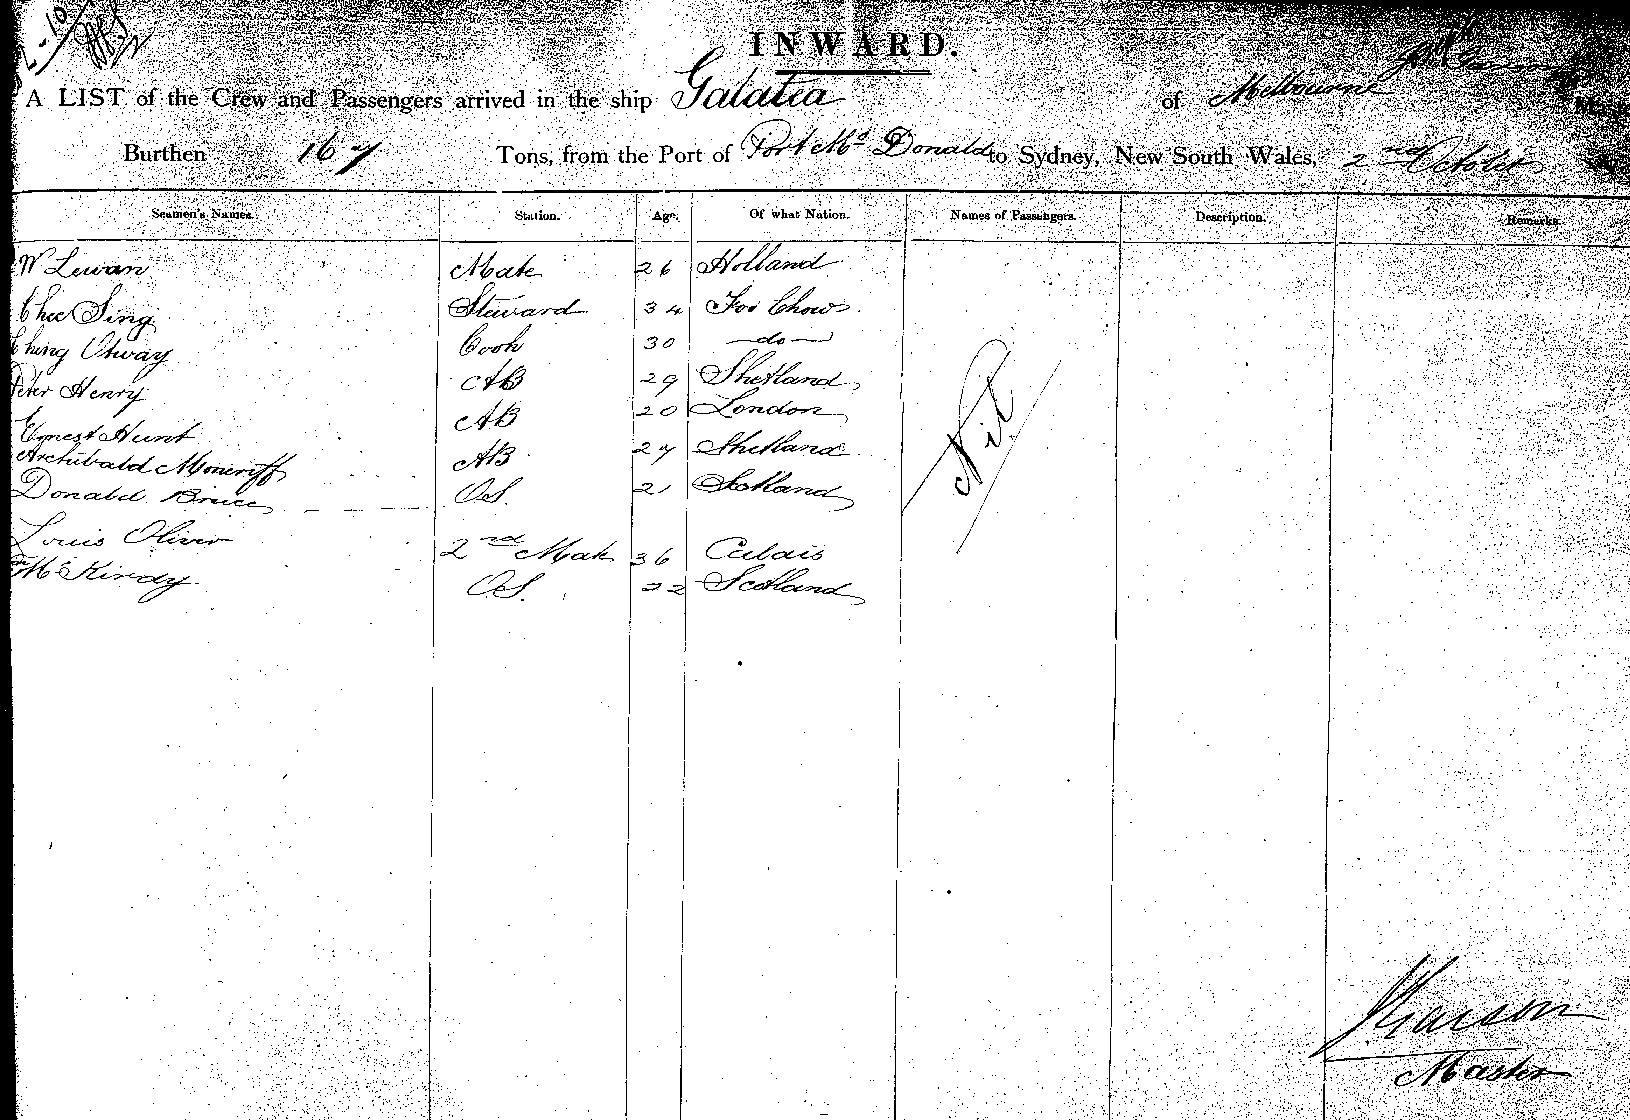 INWARD.
A LIST of the Crew and Passengers arrived in the ship Galatea of Melbourne
Burthen 167 Tons, from the Port of Port Mc Donald to Sydney, New South Wales, 2nd October
Seamen's Names. Station. Age. Of what Nation. Names of Passengers. Description. Remarks.
W Lewan Mate 26 Holland
Chee Sing Steward 34 Foo Chow
Ching Otway Cook 30 do
Peter Henry AB 29 Shetland
Ernest Hunt AB 20 London
Archibald Moncriff AB 27 Shetland
Donald Bruce OS. 21 Scotland
Louis Oliver 2nd Mate 36 Calais
McKirdy OS. 22 Scotland
Nil
J Garson
Master